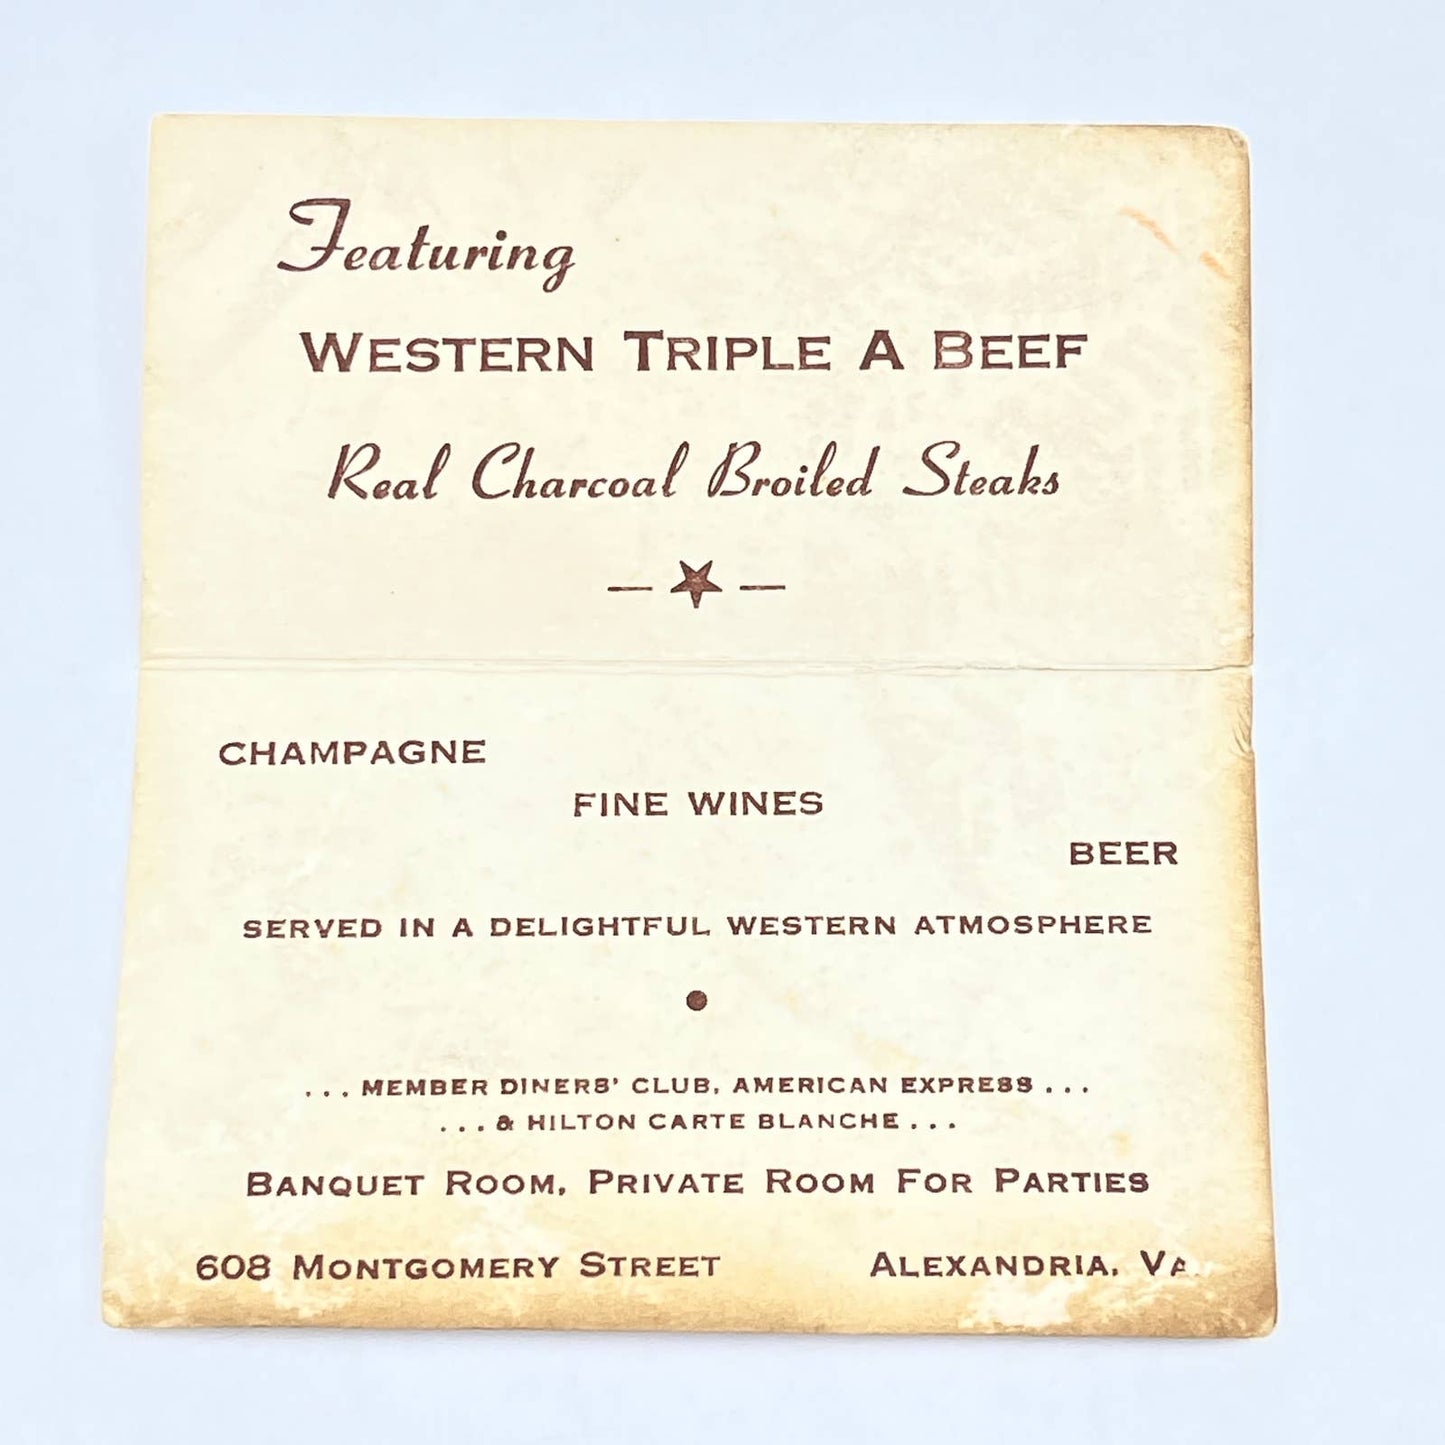 Featuring
WESTERN TRIPLE A BEEF
Real Charcoal Broiled Steaks
CHAMPAGNE
FINE WINES
BEER
SERVED IN A DELIGHTFUL WESTERN ATMOSPHERE
. . . MEMBER DINERS' CLUB, AMERICAN EXPRESS . . .
. . . & HILTON CARTE BLANCHE . . .
BANQUET ROOM, PRIVATE ROOM FOR PARTIES
608 MONTGOMERY STREET ALEXANDRIA, VA.